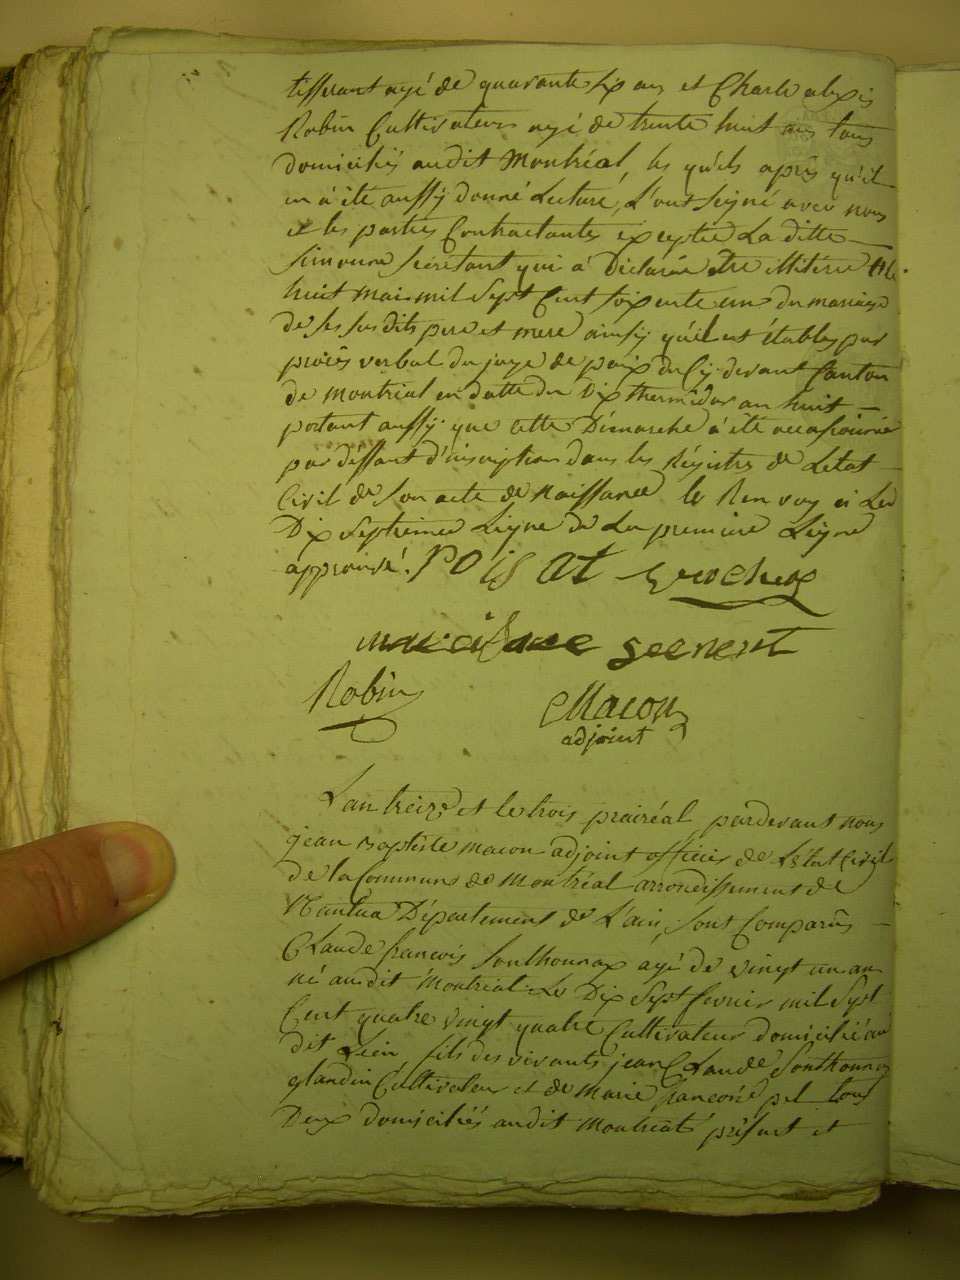 tisserant agé de quarante six ans et Charle alexis
Robin Cultivateur agé de trente huit ans tous
domiciliés audit Montréal, les qu'els après qu'il
en à été aussÿ donné Lecture, L'ont signé avec nous
et les parties Contractantes exeptée La ditte
Simonne Secretant qui à Déclarée être illiterée
huit mai mil Sept Cent soixente un du mariage
de ses susdits pere et mere ainsÿ qu'il est établis par
procès verbal du juge de paix du Cÿ-devant Canton
de Montréal en datte du Dix thermidor an huit
portant aussÿ que cette Démarche à été occasionnée
par déffaut d'inscription dans les Régistres de Letat
Civil de Son acte de Naissance le Renvoy à La
Dix Septieme Ligne de La premiere Ligne
approuvé. Poisat
Secrent
Robin Macon
adjoint
L'an treize et le trois prairéal pardevant nous
jean Baptiste Macon adjoint officier de Letat Civil
de la Commune de Montréal arrondissement de
Nantua Département de L'ain, sont Comparûs
Claude françois Sonthonnax agé de vingt un an
né audit Montréal Le Dix Sept fevrier mil Sept
Cent quatre vingt quatre Cultivateur domicilié au
dit Lieu, fils des vivants jean Claude Sonthonnax
glandin Cultivateur et de Marie françoise tous
Deux domiciliés audit Montréal présent et